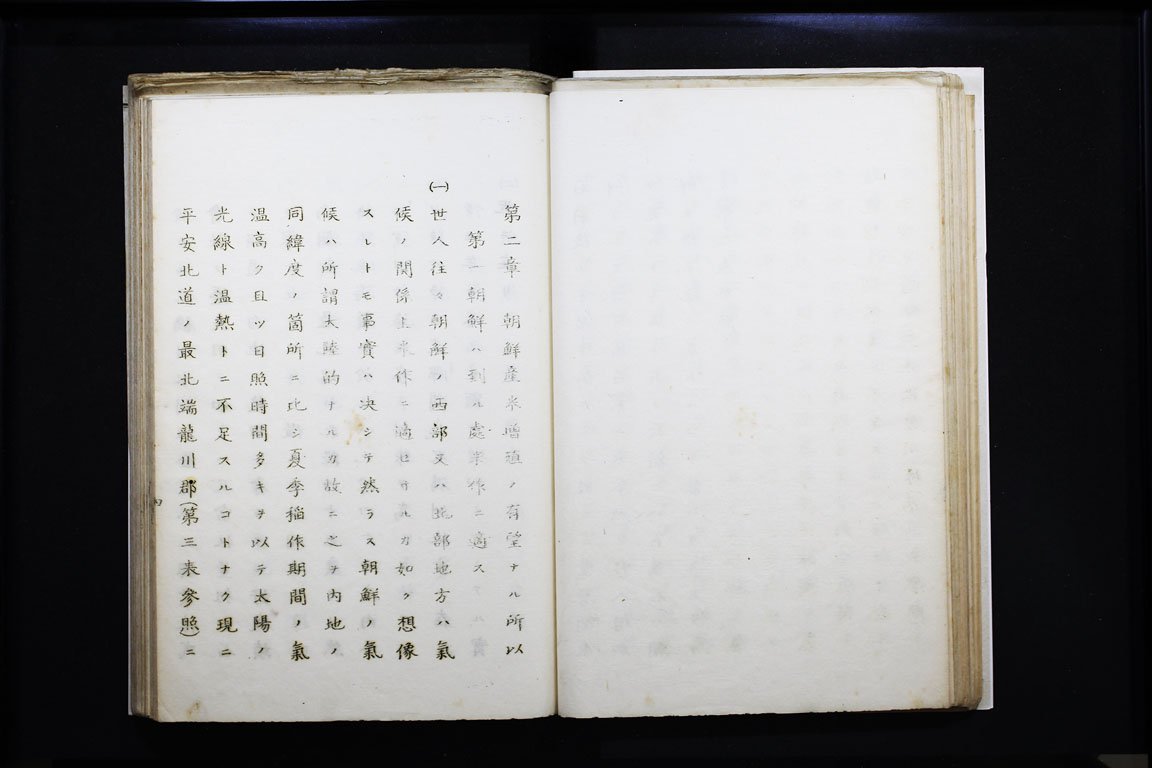 第二章 朝鮮産米增殖ノ有望ナル所以
第一 朝鮮ハ到ル處米作ニ適ス
(一)世人往々朝鮮ノ西部又ハ北部地方ハ氣
候ノ関係上米作ニ適セサルカ如ク想像
スレトモ事實ハ决シテ然ラス朝鮮ノ氣
候ハ所謂大陸的ナルカ故ニ之ヲ内地ノ
同緯度ノ箇所ニ比シ夏季稲作期間ノ氣
温高ク且ツ日照時間多キヲ以テ太陽ノ
光線ト温熱トニ不足スルコトナク現ニ
平安北道ノ最北端龍川郡(第三表參照)ニ
四